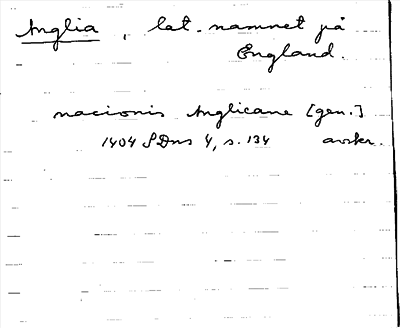 Anglia, lat. namnet på
England.
nacionis Anglicane [gen.]
1404 SDns 4, s. 134 avskr.